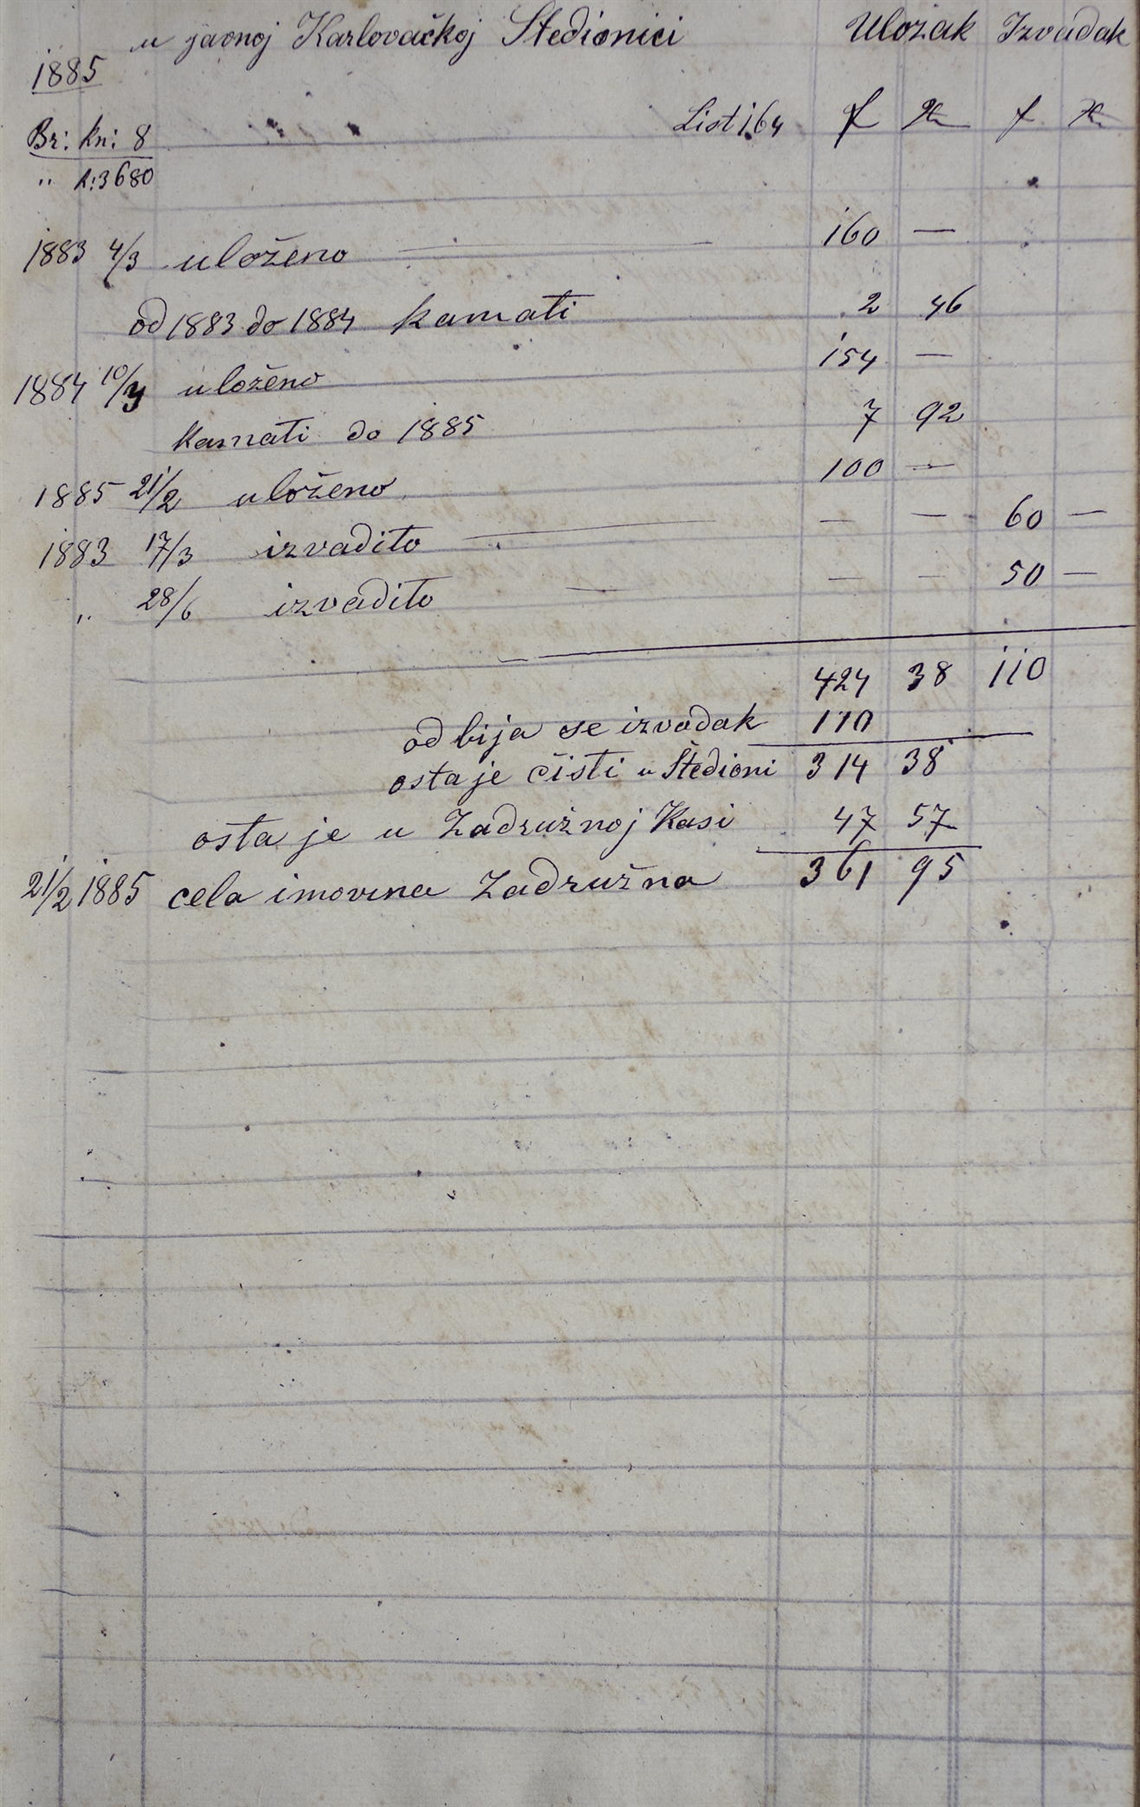 u javnoj Karlovačkoj Štedionici Uložak Izvadak
1885
Br: kn: 8 List 164 f f
" R:3680
1883 4/3 uloženo — — 160 —
od 1883 do 1884 kamati 2 46
1884 10/3 uloženo 154 —
Kamati do 1885 7 92
1885 21/2 uloženo 100 —
1883 17/3 izvadito — — — 60 —
" 28/6 izvadito — — — 50 —
424 38 110
odbija se izvadak 110
ostaje čisti u Štedioni 314 38
ostaje u Zadružnoj Kasi 47 57
21/2 1885 cela imovina Zadružna 361 95